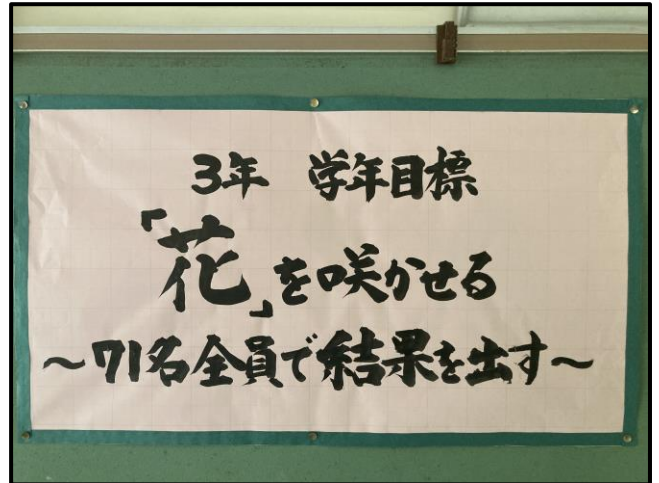 3年 学年目標
「花」を咲かせる
～71名全員で結果を出す～